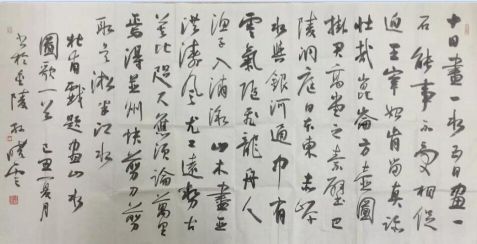 十日畫一水五日畫一
石能事不受相促
迫王宰始肯留真迹
壯哉崑崙方壺圖
掛君高堂之素壁巴
陵洞庭日本東赤岸
水與銀河通中有
雲氣隨飛龍舟人
漁子入浦漵山木盡亞
洪濤風尤工遠勢古
莫比咫尺應須論萬里
焉得并州快剪刀剪
取吳淞半江水
杜甫戲題畫山水
圖歌一首 己丑夏月
書於金陵 孫曉雲